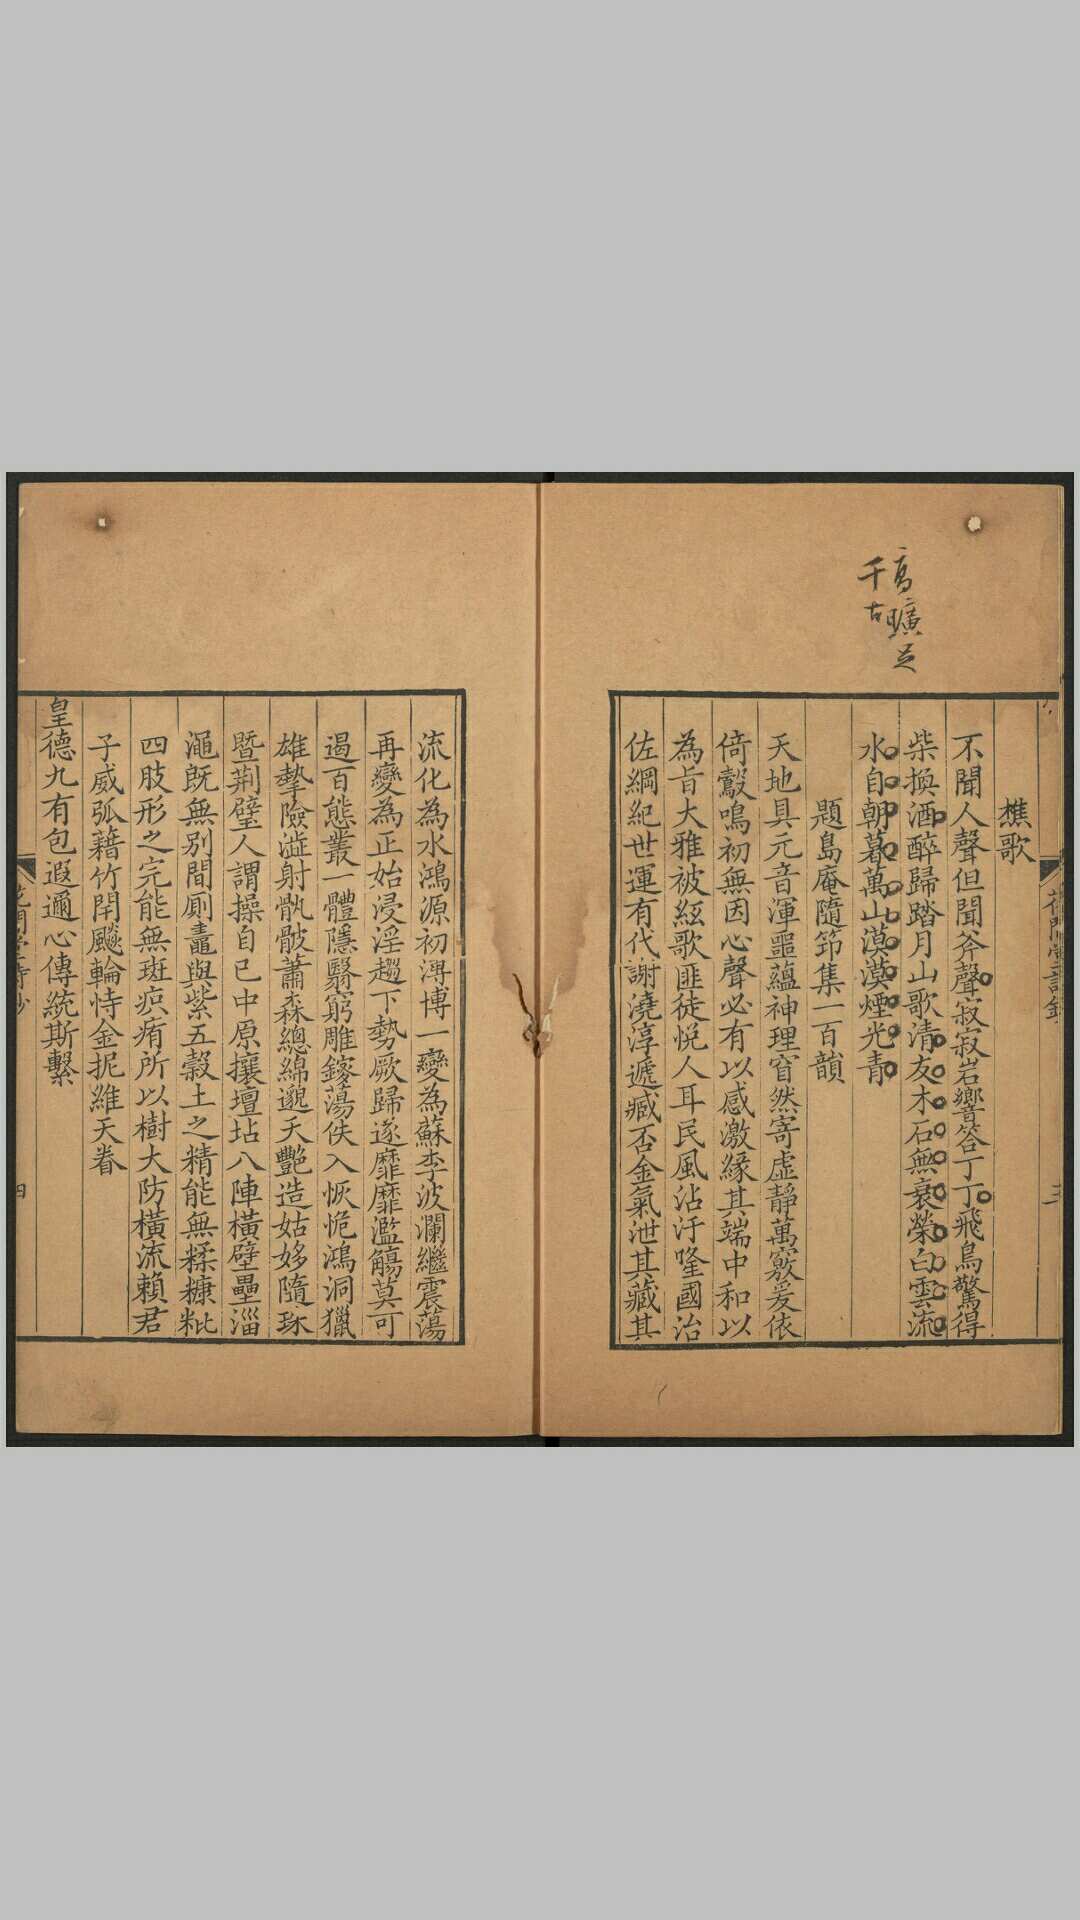 高曠足
千古
樵歌
不聞人聲但聞斧聲寂寂岩響答丁丁飛鳥驚得
柴換酒醉歸踏月山歌清友木石無衰榮白雲流
水自朝暮萬山漠漠煙光青
題島庵隨筇集一百韻
天地具元音渾噩蘊神理窅然寄虛靜萬竅爰依
倚鷇鳴初無因心聲必有以感激緣其端中和以
為旨大雅被絃歌匪徒悅人耳民風沾汙隆國治
佐綱紀世運有代謝澆淳遞臧否金氣泄其藏其
流化為水鴻源初溥博一變為蘇李波瀾繼震蕩
再變為正始浸淫趨下勢厥歸遂靡靡濫觴莫可
遏百態叢一體隱翳窮雕鎪蕩佚入恢恑鴻洞獵
雄摯險澁射骩骳蕭森總綿邈夭艷造姑姼隨珠
暨荆璧人謂操自己中原攘壇坫八陣橫壁壘淄
澠既無別間厠䵷與紫五穀土之精能無糅糠粃
四肢形之完能無斑痕痏所以樹大防橫流賴君
子威弧藉竹閈飈輪恃金柅維天眷
皇德九有包遐邇心傳統斯繫
四